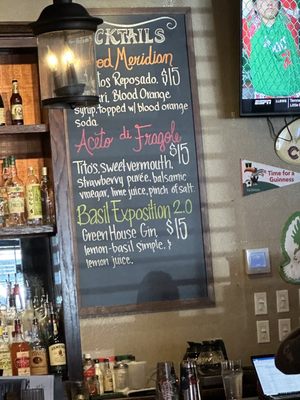 CKTAILS
od Meridian
tos Reposado, $15
ri, Blood Orange
syrup, topped w/ blood orange
soda
Aceto di Fragole
Titos, sweet vermouth, $15
strawberry puree, vanilla,
vinegar, lime juice, pinch of salt.
Basil Exposition 2.0
Green House Gin, $15
lemon-basil simple, &
lemon juice.
Time for a
GUINNESS